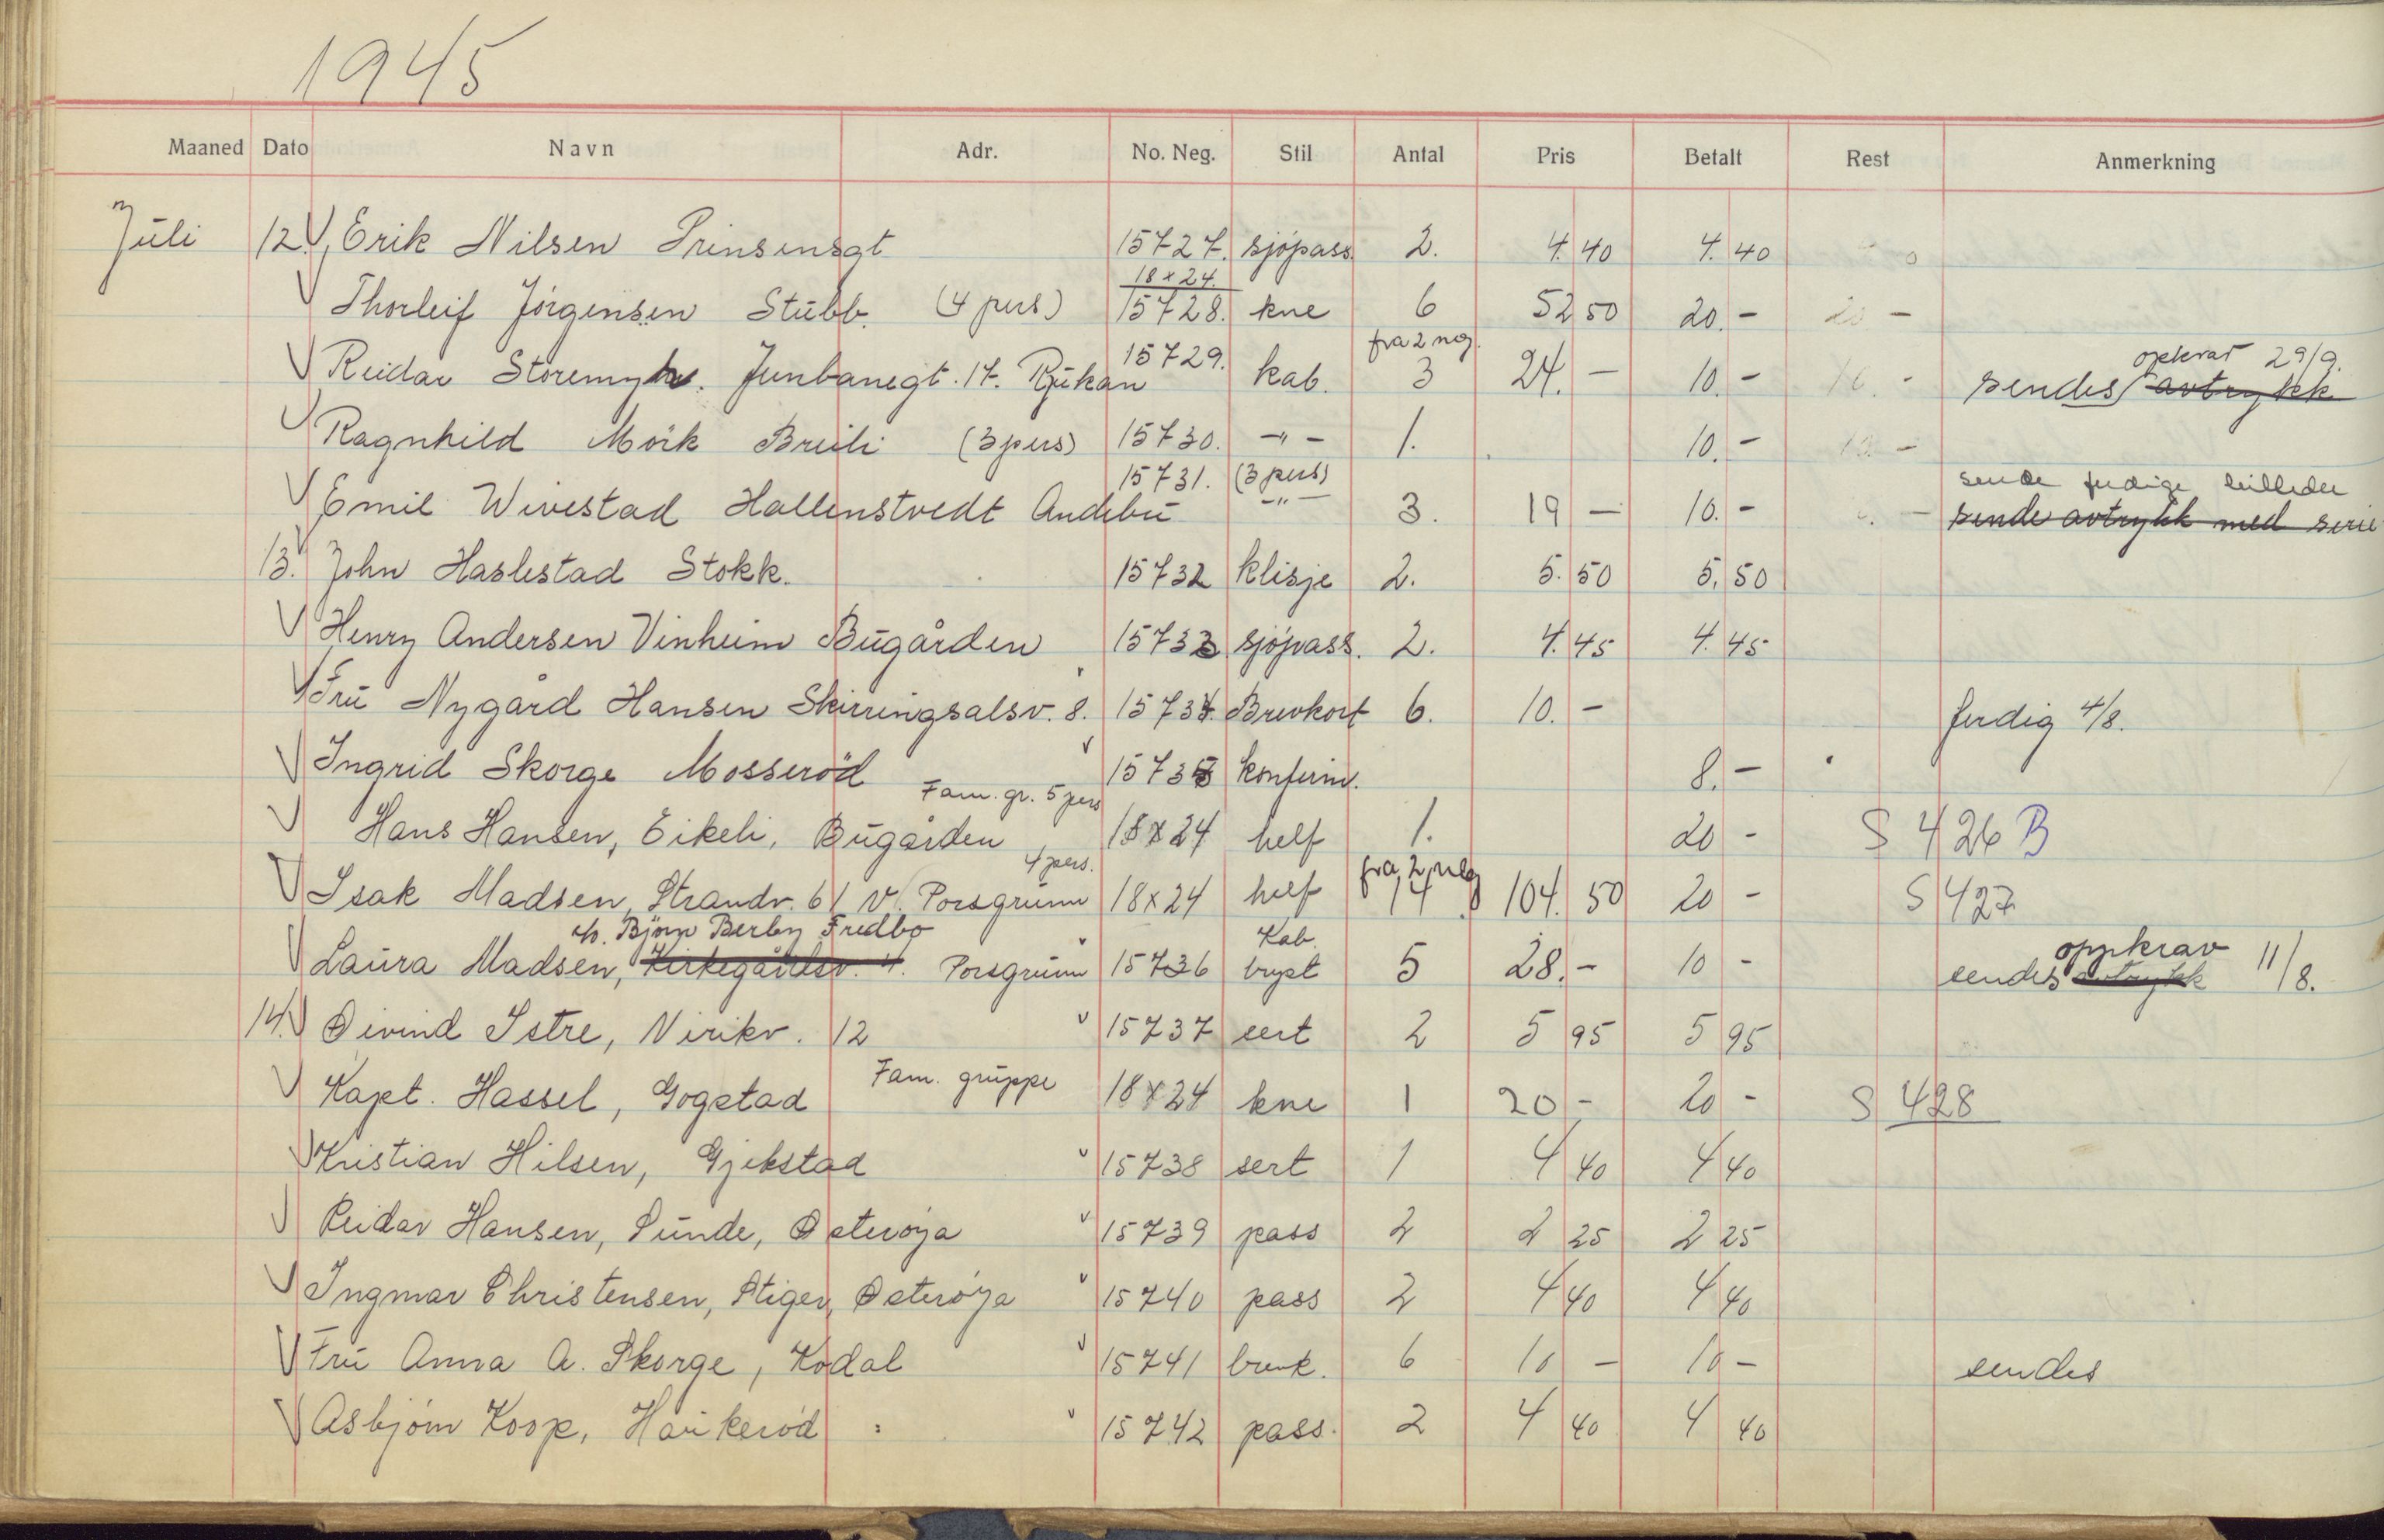 1945
Maaned Dato Navn Adr. No. Neg. Stil Antal Pris Betalt Rest Anmerkning
Juli 12. Erik Nilsen Prinsensgt 15727. sjøpass. 2. 4.40 4.40
Thorleif Jørgensen Stubb. (4 pers) 18x24. 15728. kne 6 52 50 20.- 20 -
Reidar Storemyhr. Junbanegt. 17. Rjukan 15729. kab. fra 2 neg. 3 24.- 10.- 10. - sendes avtrykk opkrav 29/9.
Ragnhild Moik Breili (3 pers) 15730. -"- 1. 10.- 10. -
Emil Wivestad Hallenstvedt Andebu 15731. (3 pers) -"- 3. 19 - 10.- sende ferdige billeder sende avtrykk med serie
13. John Haslestad Stokk. 15732 klisje 2. 5.50 5.50
Henry Andersen Vinheim Bugården 15733 sjøpass. 2. 4.45 4.45
Fru Nygård Hansen Skirringsalsv. 8. 15734. Brevkort 6. 10.- ferdig 4/8.
Ingrid Skorge Mosserød 15735 konfirm. 8.-
Hans Hansen, Eikeli, Bugården Fam. gr. 5 pers 18x24 helf 1. 20 - S 426 B
Isak Madsen, Strandv. 61 V. Porsgrunn 4 pers. 18x24 helf fra 2 neg 14 104. 50 20 - S 427
Laura Madsen, Kirkegårdsv. 4. c/o. Bjørn Berby Fredbo Porsgrunn 15736 Kab. bryst 5 28.- 10 - sendes avtrykk oppkrav 11/8.
14. Øivind Istre, Nirikv. 12 15737 sert 2 5 95 5 95
Kapt. Hassel, Gogstad Fam. gruppe 18x24 kne 1 20 - 20 - S 428
Kristian Hilsen, Gjekstad 15738 sert 1 4 40 4 40
Reidar Hansen, Sunde, Østerøya 15739 pass 2 2 25 2 25
Ingmar Christensen, Stigen, Østerøya 15740 pass 2 4 40 4 40
Fru Anna A. Skorge, Kodal 15741 brevk. 6 10 - 10 - sendes
Asbjørn Koop, Haukerød 15742 pass. 2 4 40 4 40